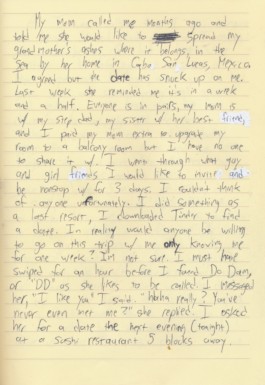 My Mom called me months ago and
told me she would like to spread my
grandmother's ashes where it belongs, in the
sea by her home in Cabo San Lucas, Mexico.
I agreed but the date has snuck up on me.
Last week she reminded me it's in a week
and a half. Everyone is in pairs, my mom is
w/ my step dad, my sister w/ her best friend,
and I paid my mom extra to upgrade my
room to a balcony room but I have no one
to share it w/. I went through what guy
and girl friends I would like to invite and
be nonstop w/ for 3 days. I couldn't think
of anyone unfortunately. I did something as
a last resort, I downloaded Tinder to find
a date. In reality would anyone be willing
to go on this trip w/ me only knowing me
for one week? I'm not sure. I must have
swiped for an hour before I found Do Dam,
or "DD" as she likes to be called. I messaged
her, "I like you" I said. "haha really? You've
never even met me?" she replied. I asked
her for a date the next evening (tonight)
at a sushi restaurant 5 blocks away.